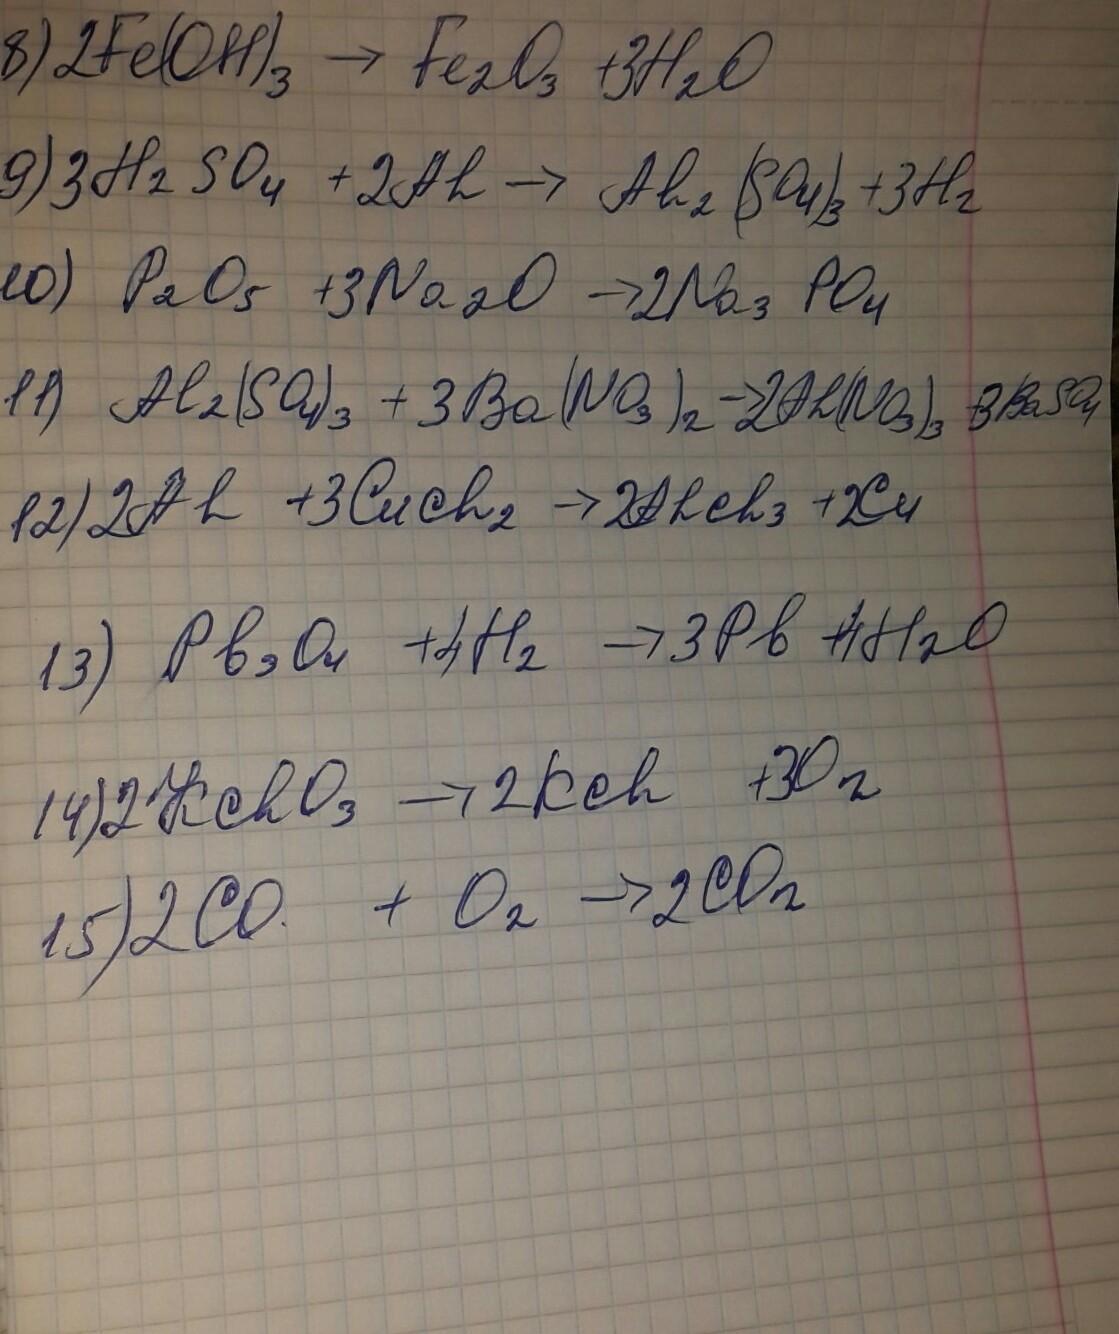 8) 2Fe(OH)₃ → Fe₂O₃ + 3H₂O
9) 3H₂SO₄ + 2Al → Al₂(SO₄)₃ + 3H₂
10) P₂O₅ + 3Na₂O → 2Na₃PO₄
11) Al₂(SO₄)₃ + 3Ba(NO₃)₂ → 2Al(NO₃)₃ + 3BaSO₄
12) 2Al + 3CuCl₂ → 2AlCl₃ + 2Cu
13) Pb₃O₄ + 4H₂ → 3Pb + 4H₂O
14) 2KClO₃ → 2KCl + 3O₂
15) 2CO. + O₂ → 2CO₂